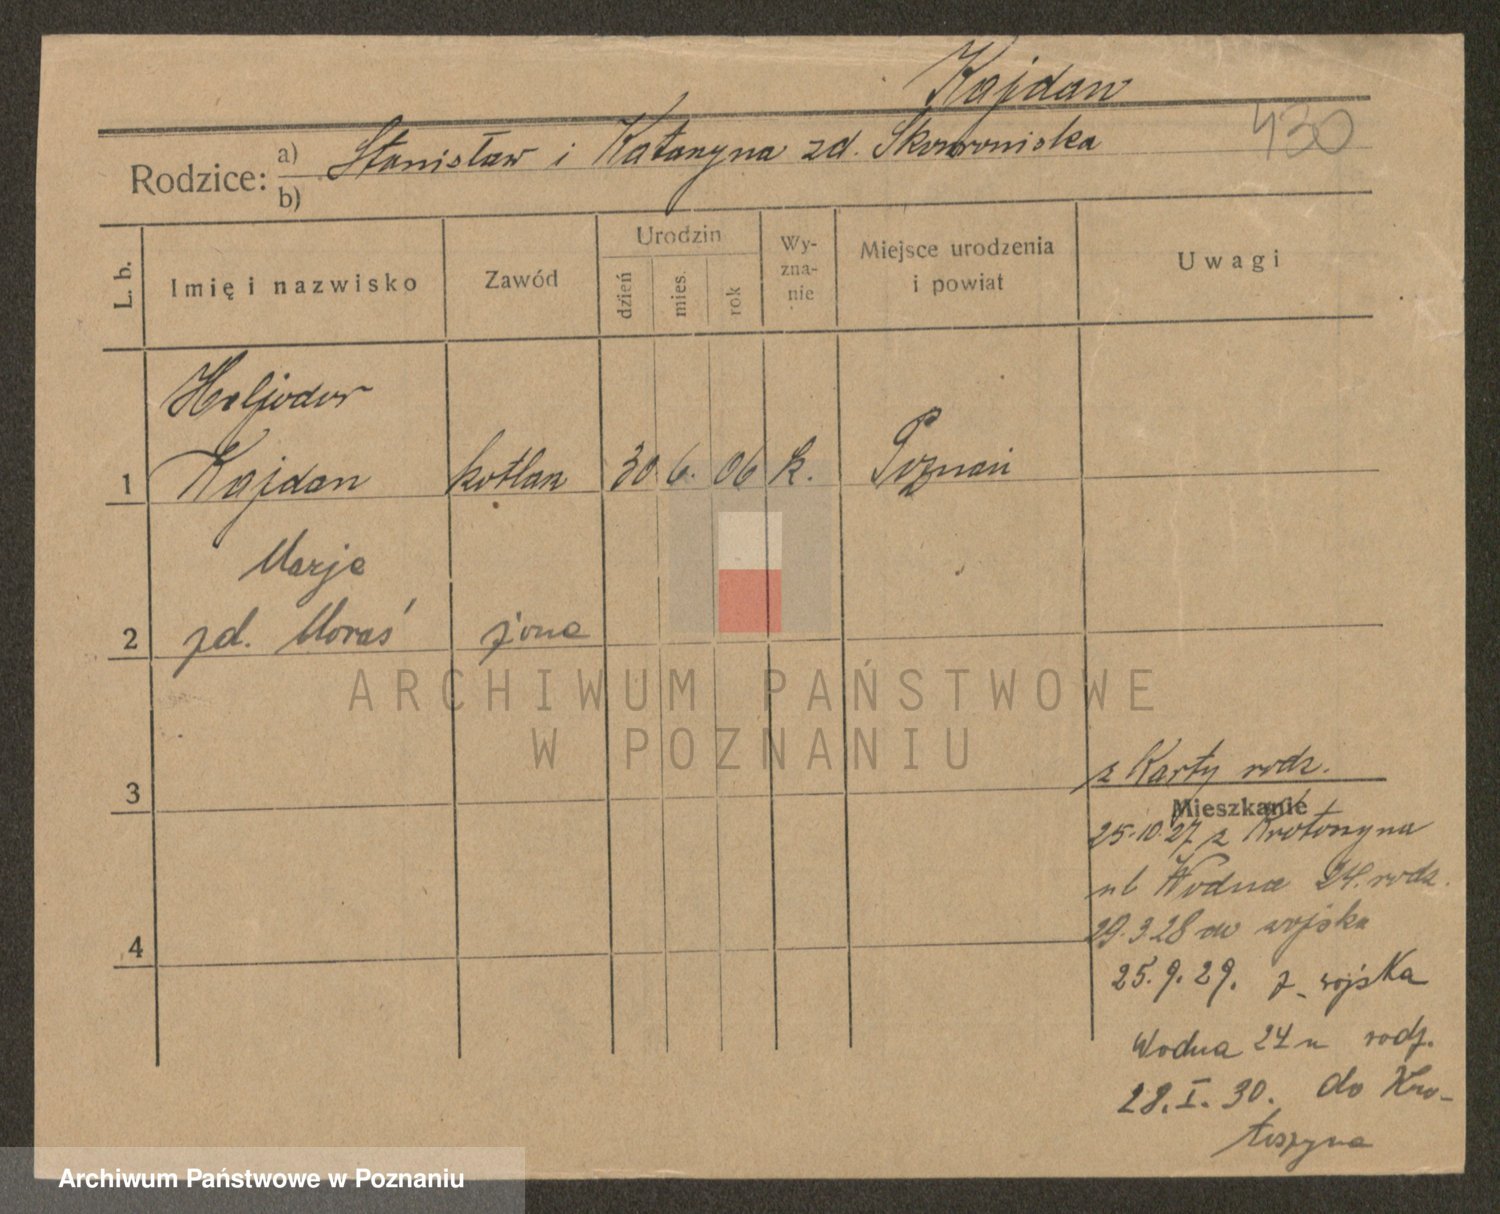 Kajdan
430
Rodzice:
a) Stanisław i Katarzyna zd. Skowrońska
b)
L. b.
Imię i nazwisko
Zawód
Urodzin
dzień
mies.
rok
Wy-
zna-
nie
Miejsce urodzenia
i powiat
Uwagi
Heljodor
1 Kajdan kotlarz 30 6. 06 k. Poznań
Marja
2 zd. Moraś żona
3
4
z Karty rodz.
Mieszkanie
25.10.27 z Krotoszyna
ul Wodna 24. rodz.
29.3.28 do wojska
25.9.29. z wojska
Wodna 24 u rodz.
28.I.30. do Kro-
toszyna
ARCHIWUM PAŃSTWOWE
W POZNANIU
Archiwum Państwowe w Poznaniu